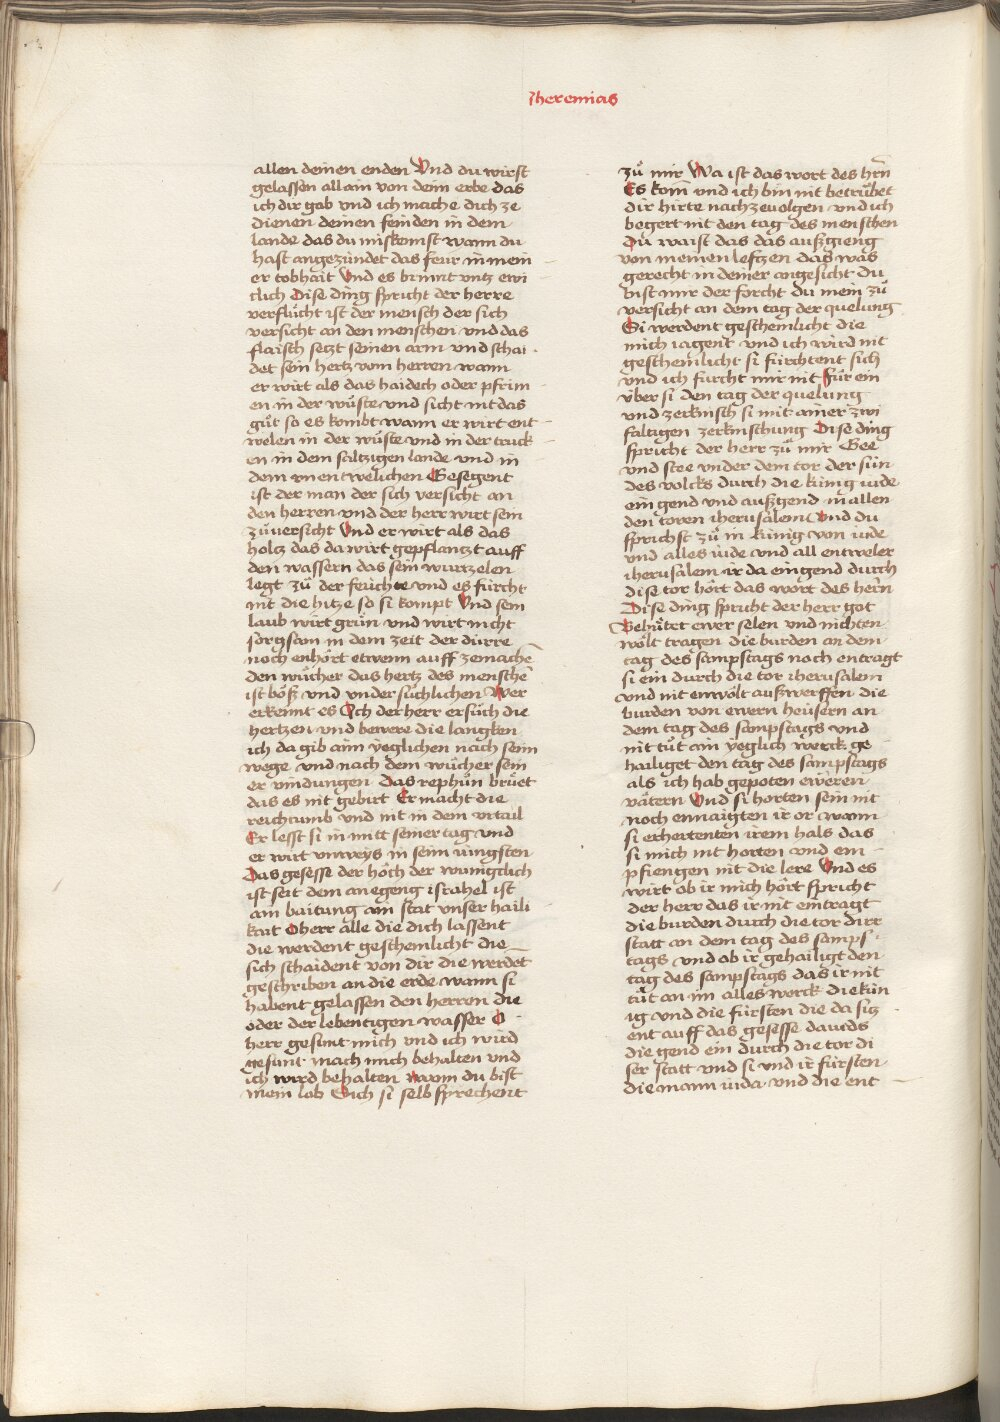 Jheremias
allen deinen enden Vnd du wirst
gelassen allain von deim erbe das
ich dir gab vnd ich mache dich ze
dienen deinen feinden in dem
lande das du nit kennst wann du
hast angezündet das feur in mein
er tobhait Vnd es brinnt vntz ewi
clich Dise ding spricht der herre
verflücht ist der mensch der sich
versicht an den menschen vnd das
flaisch setzt seinen arm vnd schai
det sein hertz vom herren wann
er wirt als das haidech oder pfrim
en in der wüste vnd sicht nit das
gůt so es kombt wann er wirt ent
welen in der wüste vnd in der truck
en in dem saltzigen lande vnd in
dem vnentwelichen Gesegent
ist der man der sich versicht an
den herren vnd der herr wirt sein
zůuersicht Vnd er wirt als das
holtz das da wirt gepflantzt auff
den wassern das sein wurtzelen
legt zů der feüchte vnd es fürcht
nit die hitze so si kompt Vnd sein
laub wirt grün vnd wirt nicht
sorgsam in dem zeit der dürre
noch enhört etwenn auff zemachē
den wůcher das hertz des menschē
ist böß vnd vnder süchlichen Wer
erkennt es Ich der herr ersüch die
hertzen vnd bewere die langken
ich da gib aim yeglichen nach seim
wege vnd nach dem wůcher sein
er vindungen Das rephůn brůet
das es nit gebirt Er macht die
reichtumb vnd nit in dem vrtail
Er lesst si in mitt seiner tag vnd
er wirt vnweys in seim iüngsten
Das gesesse der höch der wunigclich
ist seit dem anegeng israhel ist
am baitung ain stat vnser haili
kait O herr alle die dich lassent
die werdent geschemlicht die
sich schaident von dir die werdēt
geschriben an die erde wann si
habent gelassen den herren die
oder der lebentigen wasser O
herr gesunt mich vnd ich wird
gesunt mach mich behalten vnd
ich wird behalten wann du bist
mein lob Sich si selb sprechent
zů mir Wa ist das wort des hrñ
Es kom vnd ich bin nit betrübet
dir hirte nachzeuolgen vnd ich
begert nit den tag des menschen
Du waist das das außgieng
von meinen lefftzen das was
gerecht in deiner angesicht Du
bist mir der forcht du mein zů
versicht an dem tag der quelung
Si werdent geschemlicht die
mich iagent vnd ich wird nit
geschemlicht si fürchtent sich
vnd ich fürcht mir nit Für ein
über si den tag der quelung
vnd zerknisch si mit ainer zwi
faltigen zerknischung Dise ding
spricht der herr zů mir Gee
vnd stee vnder dem tor der sün
des volcks durch die künig iude
eingend vnd außgend in allen
den toren iherusalem Vnd du
sprichst zů in künig von iude
vnd alles iude vnd all entweler
iherusalem ir da eingend durch
dise tor hört das wort des herñ
Dise ding spricht der herr got
Behütet ewer selen vnd nichten
wölt tragen die burden an dem
tag des sampstags noch entragt
si ein durch die tor iherusalem
vnd nit enwölt außwerffen die
burden von ewern heüsern an
dem tag des sampstags vnd
nit tůt ain yeglich werck ge
hailiget den tag des sampstags
als ich hab gepoten eweren
vätern Vnd si horten sein nit
noch ennaigten ir or wann
si erhertenten irem hals das
si mich nit horten vnd em
pfiengen nit die lere Vnd es
wirt ob ir mich hört spricht
der herr das ir nit eintragt
die burden durch die tor dirr
statt an dem tag des samps
tags vnd ob ir gehailigt den
tag des sampstags das ir nit
tůt an im alles werck die kün
ig vnd die fürsten die da sitz
ent auff das gesesse dauids
die gend ein durch die tor di
ser statt vnd si vnd ir fürsten
die mann iuda vnd die ent